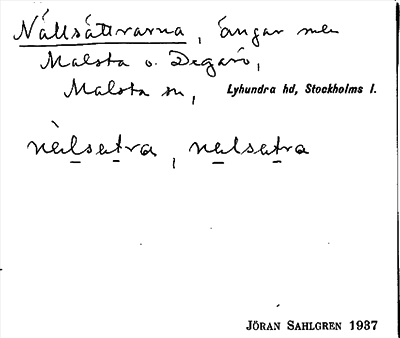 Nällsättrarna, ängar mell
Malsta o. Degarö,
Malsta sn, Lyhundra hd, Stockholms l.
nälsatra, nalsatra
JÖRAN SAHLGREN 1937